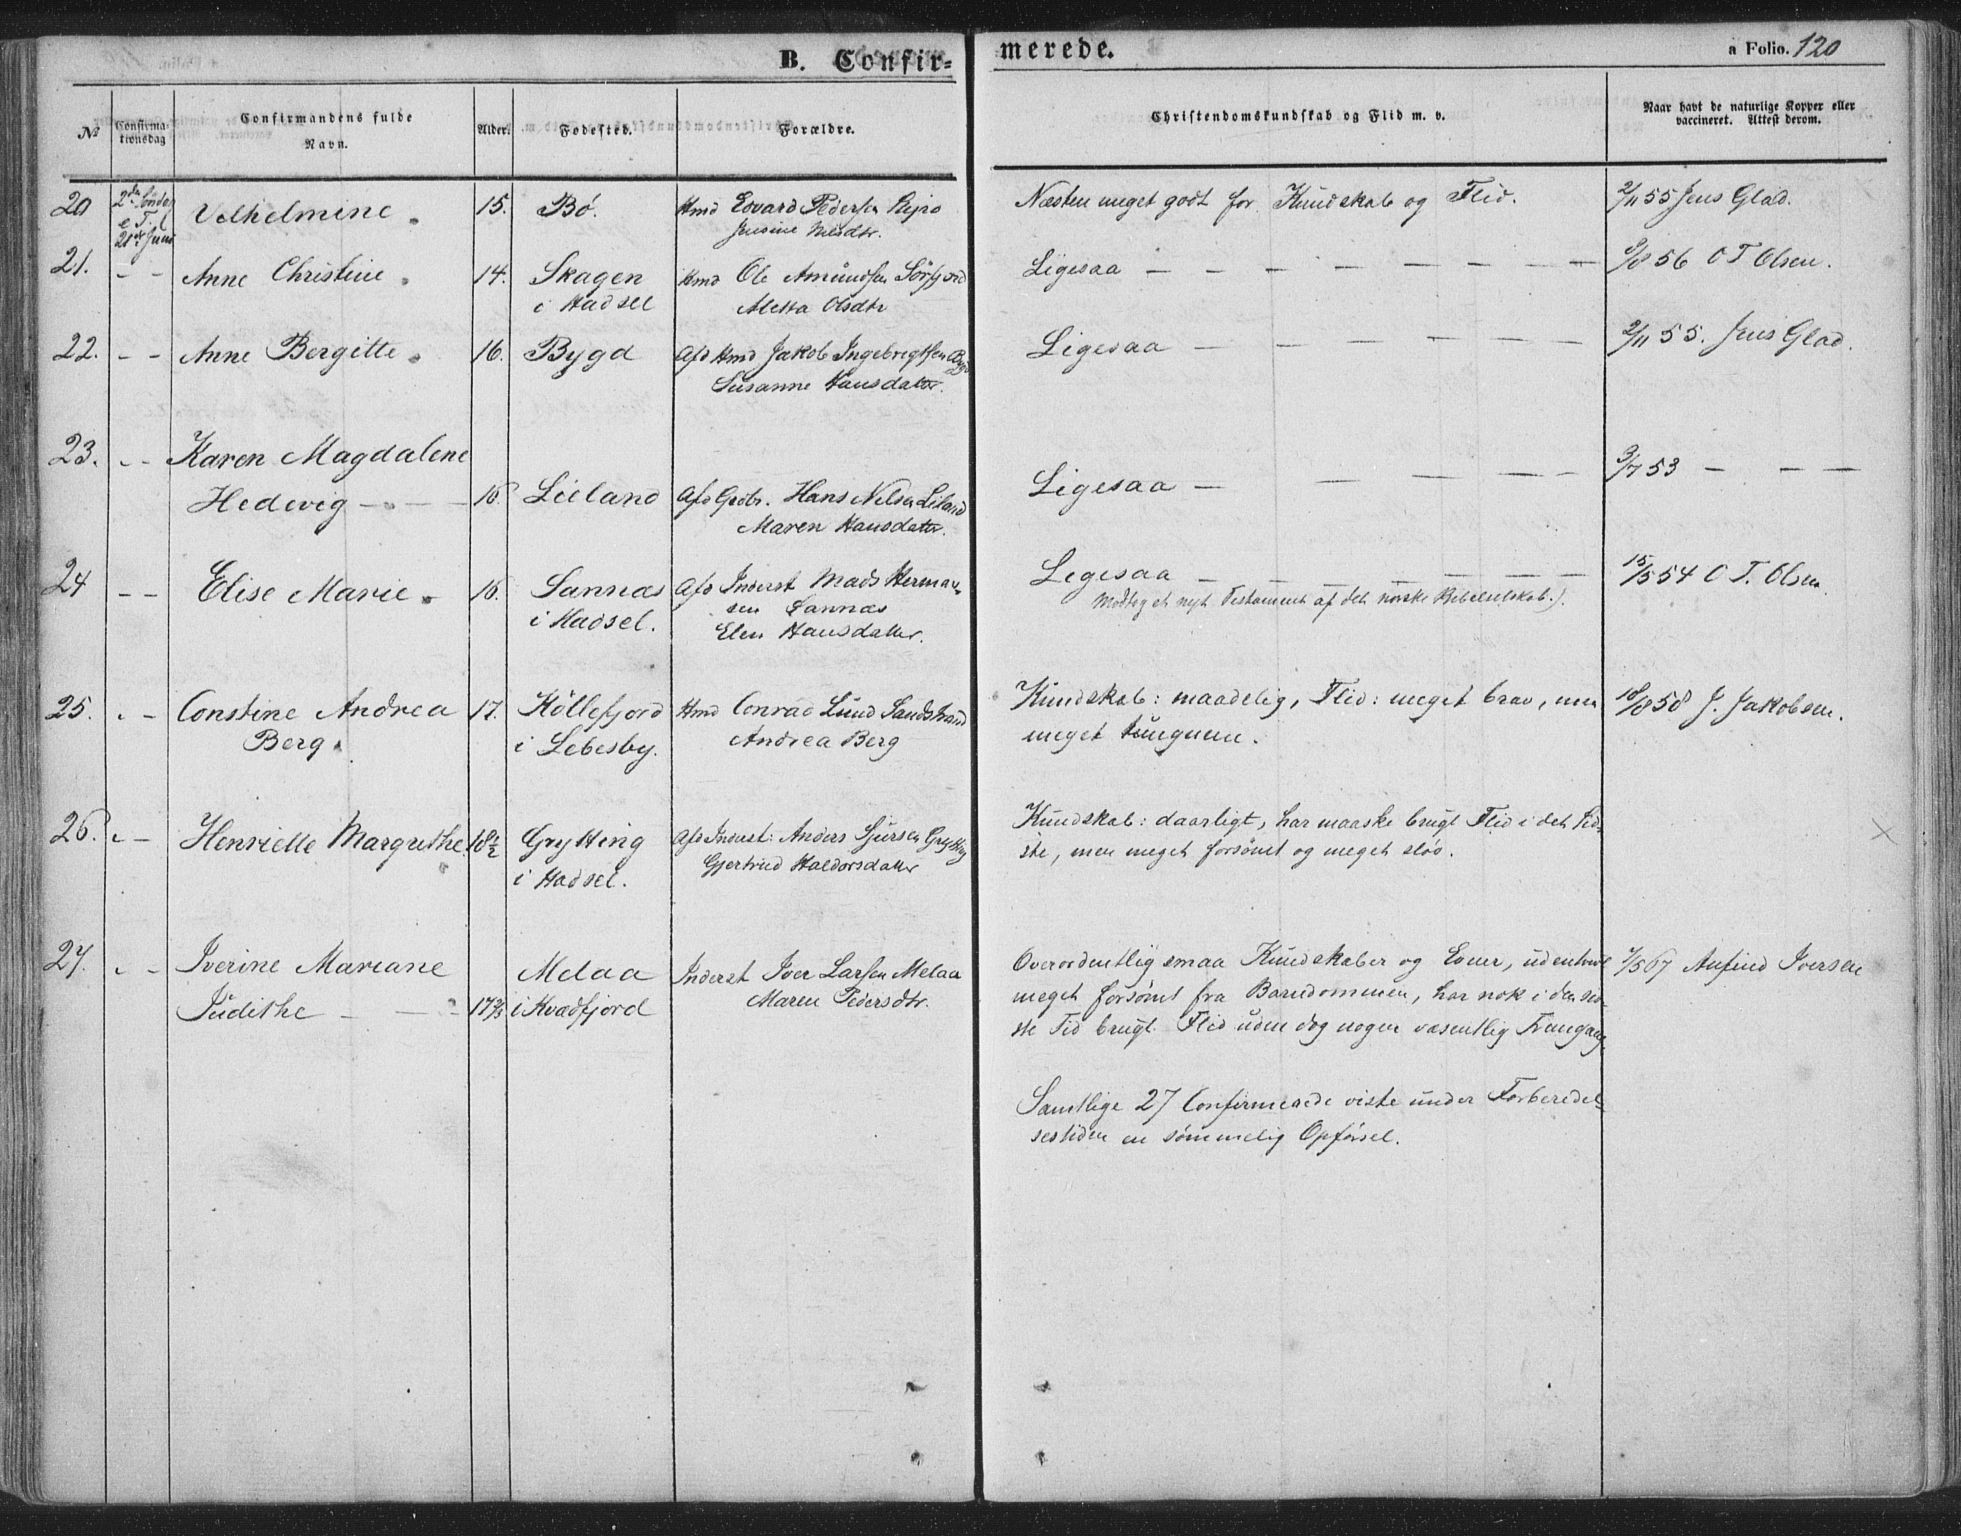 B. Confir= merede. a Folio. 120
No Confirma-tionsdag Confirmandens fulde Navn. Alder. Fødested. Forældre. Christendomskundskab og Flid m. v. Naar havt de naturlige Kopper eller vaccineret. Attest derom.
20 2den Søndag Velhelmine 15. Bø. Hmd Edvard Pedersen Næsten meget godt for Kundskab og Flid. 2/11 55 Jens Glad.
e Tr.
21de Juni
21. – – Anne Christine 14. Skagen Hmd Ole Amundsen Sörfjord Ligesaa – – – – – – – 9/8 56 O T Olsen.
i Hadsel Metta Olsdtr
22. – – Anne Bergitte 16. Bygd Afd Hmd Jakob Ingebrigtsen Bygd Ligesaa – – – – – – 2/11 55. Jens Glad.
Susanne Hansdater.
23. – – Karen Magdalene
Hedevig – – 16. Lieland Afd Grdbr. Hans Nilsen Liland Ligesaa – – – – – 3/7 53 – – –
Maren Hansdater.
24 – – Elise Marie 16. Sannæs Afd Inderst Mads Herman- Ligesaa – – – – – – 15/5 54 O T. Olsen
i Hadsel. sen Sannæs Modtog et nyt Testament af det norske Bibelselskab.).
Elen Hansdatter.
25. – – Constine Andrea 17. Köllefjord Hmd Conrad Lund Sandstrand Kundskab: maadelig, Flid: meget brav, men 10/8 58 J. Jakobsen.
Berg. i Lebesby. Andrea Berg meget tungnem.
26. – – Henriette Margrethe 18½ Grytting Afd Inderst: Anders Sjursen Grytting Kundskab: daarligt, har maaske brugt Flid i det Sid-
i Hadsel. Gjertrud Haldorsdatter ste, men meget forsömt og meget slöv.
27. – – Iverine Mariane Melaa Inderst Iver Larsen Melaa Overordentlig smaa Kundskaber og Evner, udentvivl 7/5 67 Anfind Iversen
Judithe – – 17⅔ i Kvædfjord Maren Pedersdtr. meget forsömt fra Barndommen, har nok i den sid-
ste Tid brugt Flid uden dog nogen væsentlig Fremgang.
Samtlige 27 Confirmerede viste under Forberedel-
sestiden en sømmelig Opførsel.